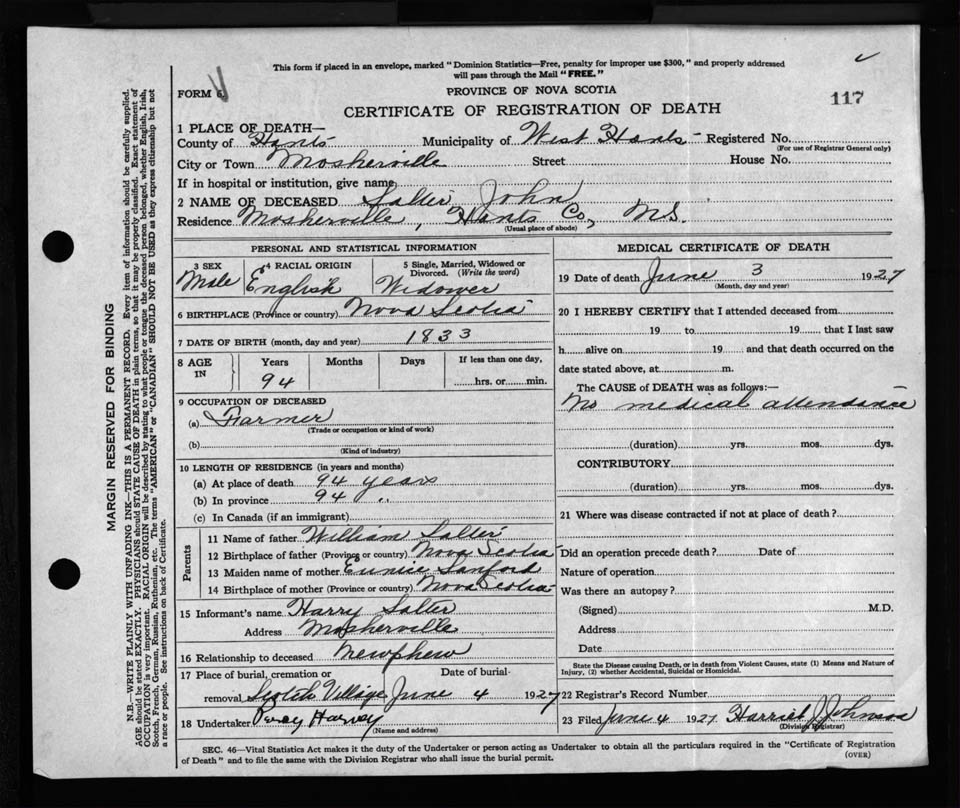 This form if placed in an envelope, marked "Dominion Statistics—Free, penalty for improper use $300," and properly addressed
will pass through the Mail "FREE."
FORM 6.
PROVINCE OF NOVA SCOTIA
CERTIFICATE OF REGISTRATION OF DEATH
117
1 PLACE OF DEATH—
County of Hants Municipality of West Hants Registered No.
(For use of Registrar General only)
City or Town Mosherville Street House No.
If in hospital or institution, give name
2 NAME OF DECEASED Salter John
Residence Mosherville, Hants Co, N.S.
(Usual place of abode)
PERSONAL AND STATISTICAL INFORMATION
3 SEX 4 RACIAL ORIGIN 5 Single, Married, Widowed or Divorced. (Write the word)
Male English Widower
6 BIRTHPLACE (Province or country) Nova Scotia
7 DATE OF BIRTH (month, day and year) 1833
8 AGE IN Years Months Days If less than one day,
94 hrs. or min.
9 OCCUPATION OF DECEASED
(a) Farmer
(Trade or occupation or kind of work)
(b)
(Kind of industry)
10 LENGTH OF RESIDENCE (in years and months)
(a) At place of death 94 years
(b) In province 94 "
(c) In Canada (if an immigrant)
Parents
11 Name of father William Salter
12 Birthplace of father (Province or country) Nova Scotia
13 Maiden name of mother Eunice Sanford
14 Birthplace of mother (Province or country) Nova Scotia
15 Informant's name Harry Salter
Address Mosherville
16 Relationship to deceased Newphew
17 Place of burial, cremation or Date of burial
removal Scotch Village June 4 1927
18 Undertaker Percy Harvey
(Name and address)
MEDICAL CERTIFICATE OF DEATH
19 Date of death June 3 1927
(Month, day and year)
20 I HEREBY CERTIFY that I attended deceased from
19 to 19 that I last saw
h alive on 19 and that death occurred on the
date stated above, at m.
The CAUSE of DEATH was as follows:—
No medical attendance
(duration) yrs. mos. dys.
CONTRIBUTORY
(duration) yrs. mos. dys.
21 Where was disease contracted if not at place of death?
Did an operation precede death? Date of
Nature of operation
Was there an autopsy?
(Signed) M.D.
Address
Date
State the Disease causing Death, or in death from Violent Causes, state (1) Means and Nature of
Injury, (2) whether Accidental, Suicidal or Homicidal.
22 Registrar's Record Number
23 Filed June 4 1927. Harriet J Johnson
(Division Registrar)
SEC. 46—Vital Statistics Act makes it the duty of the Undertaker or person acting as Undertaker to obtain all the particulars required in the "Certificate of Registration
of Death" and to file the same with the Division Registrar who shall issue the burial permit.
(OVER)
MARGIN RESERVED FOR BINDING
N.B.—WRITE PLAINLY WITH UNFADING INK—THIS IS A PERMANENT RECORD. Every item of information should be carefully supplied.
AGE should be stated EXACTLY. PHYSICIANS should STATE CAUSE OF DEATH in plain terms, so that it may be properly classified. Exact statement of
OCCUPATION is very important. RACIAL ORIGIN will be described by stating to what people or tongue the deceased person belonged, whether English, Irish,
Scotch, French, German, Russian, Ruthenian, etc. The terms "AMERICAN" or "CANADIAN" SHOULD NOT BE USED as they express citizenship but not
a race or people. See instructions on back of Certificate.